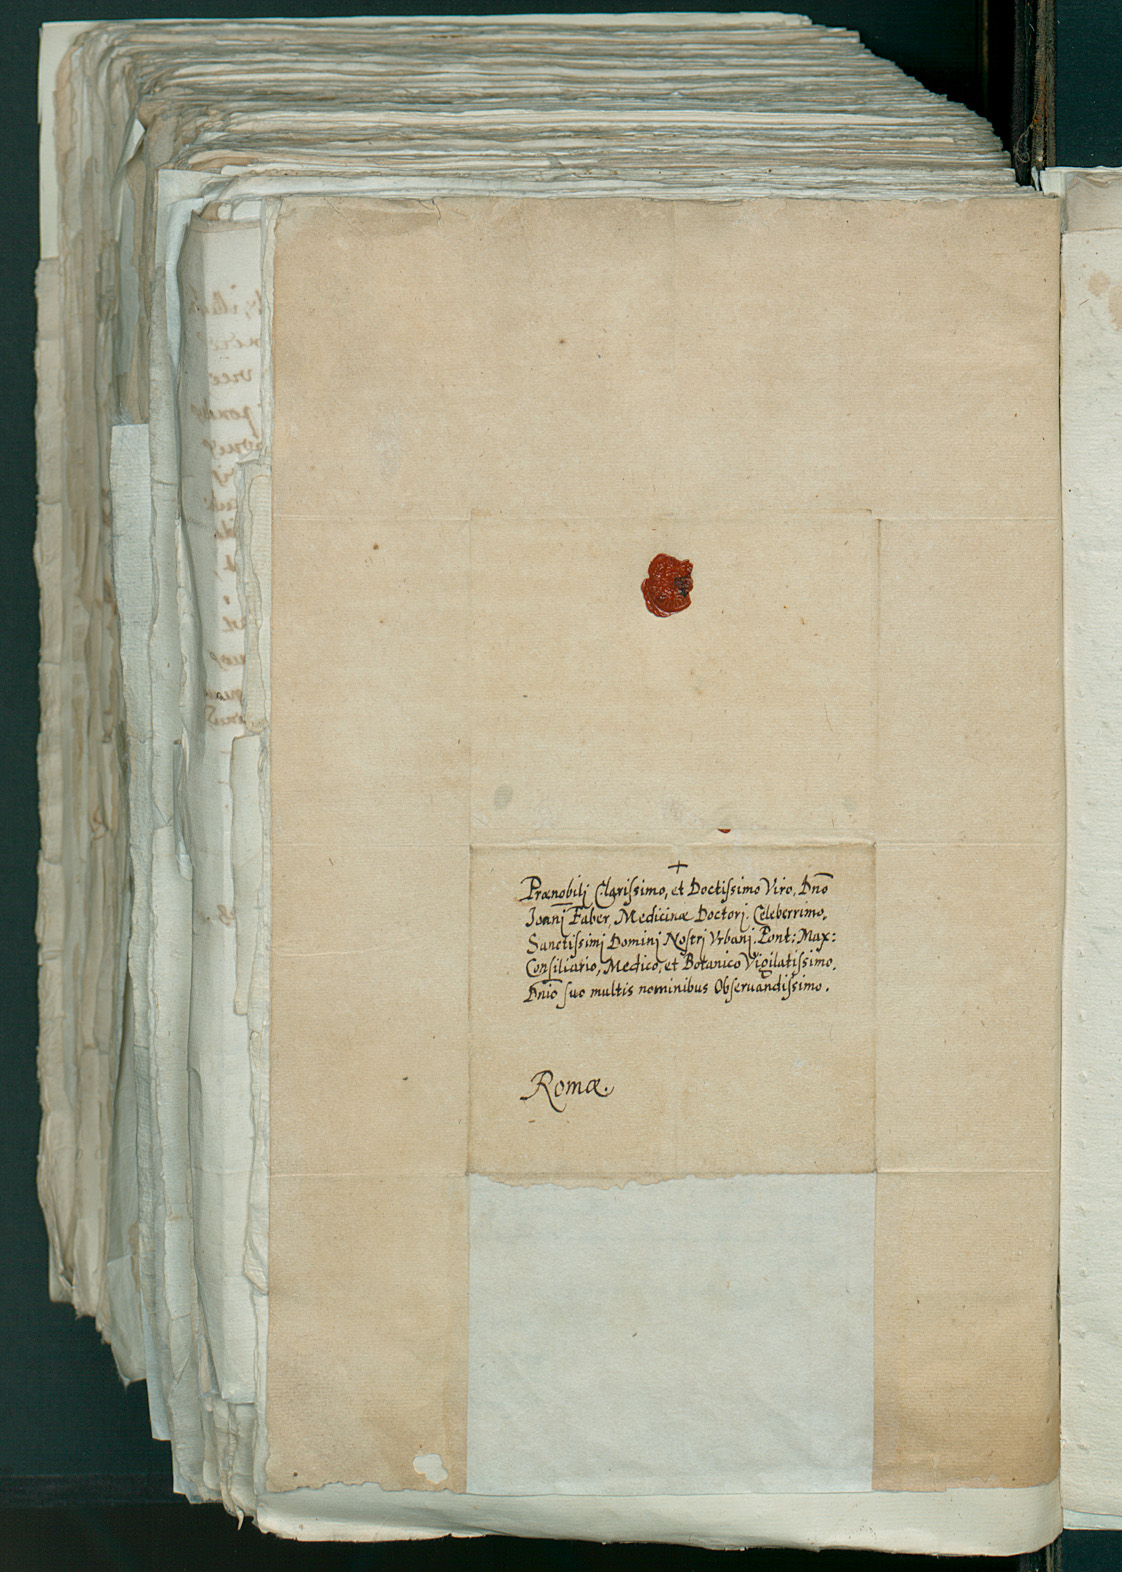 +
Prænobilj Clarissimo, et Doctissimo Viro, Dn̄o
Ioanj Faber, Medicinæ Doctorj Celeberrimo,
Sanctissimj Dominj Nostrj Vrbanj. Pont: Max:
Consiliario, Medico, et Botanico Vigilatissimo,
Dn̄io suo multis nominibus Obseruandissimo.
Romæ.